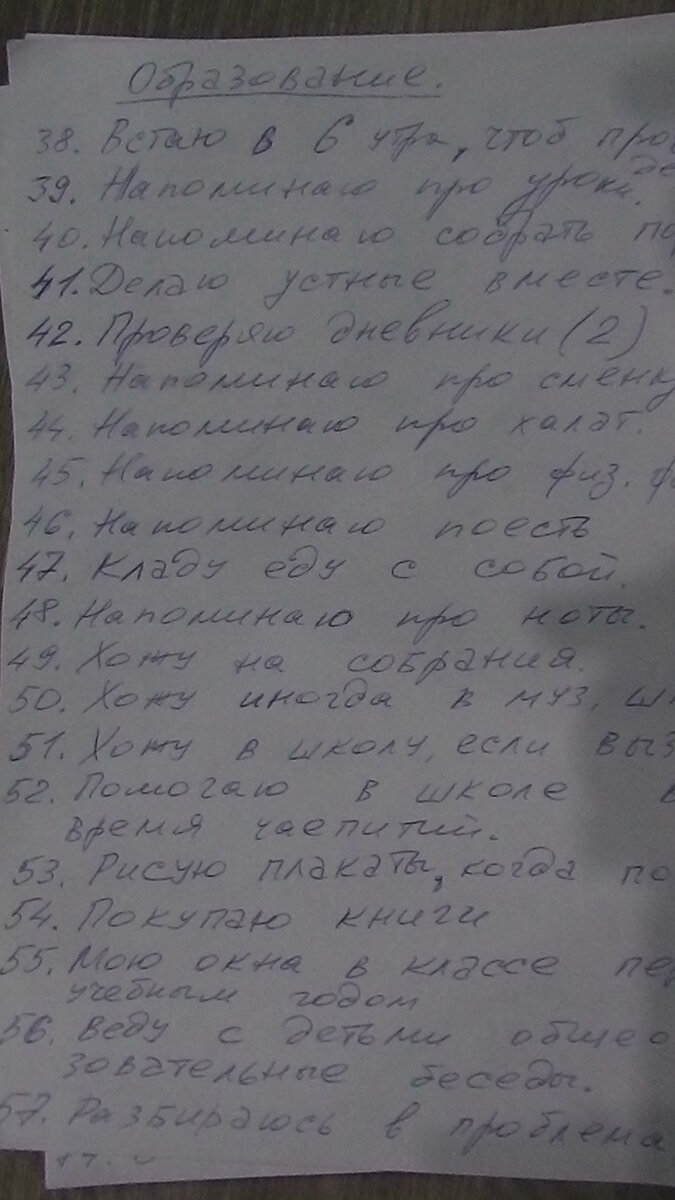 Образование.
38. Встаю в 6 утра, чтоб
39. Напоминаю про уроки.
40. Напоминаю собрать
41. Делаю устные вместе.
42. Проверяю дневники (2)
43. Напоминаю про сменк
44. Напоминаю про халат.
45. Напоминаю про физ.
46. Напоминаю поесть
47. Кладу еду с собой.
48. Напоминаю про ноты.
49. Хожу на собрания.
50. Хожу иногда в муз. ш
51. Хожу в школу, если выз
52. Помогаю в школе в
время чаепитий.
53. Рисую плакаты, когда по
54. Покупаю книги
55. Мою окна в классе пе
учебным годом
56. Веду с детьми общео
зовательные беседы.
57. Разбираюсь в проблема